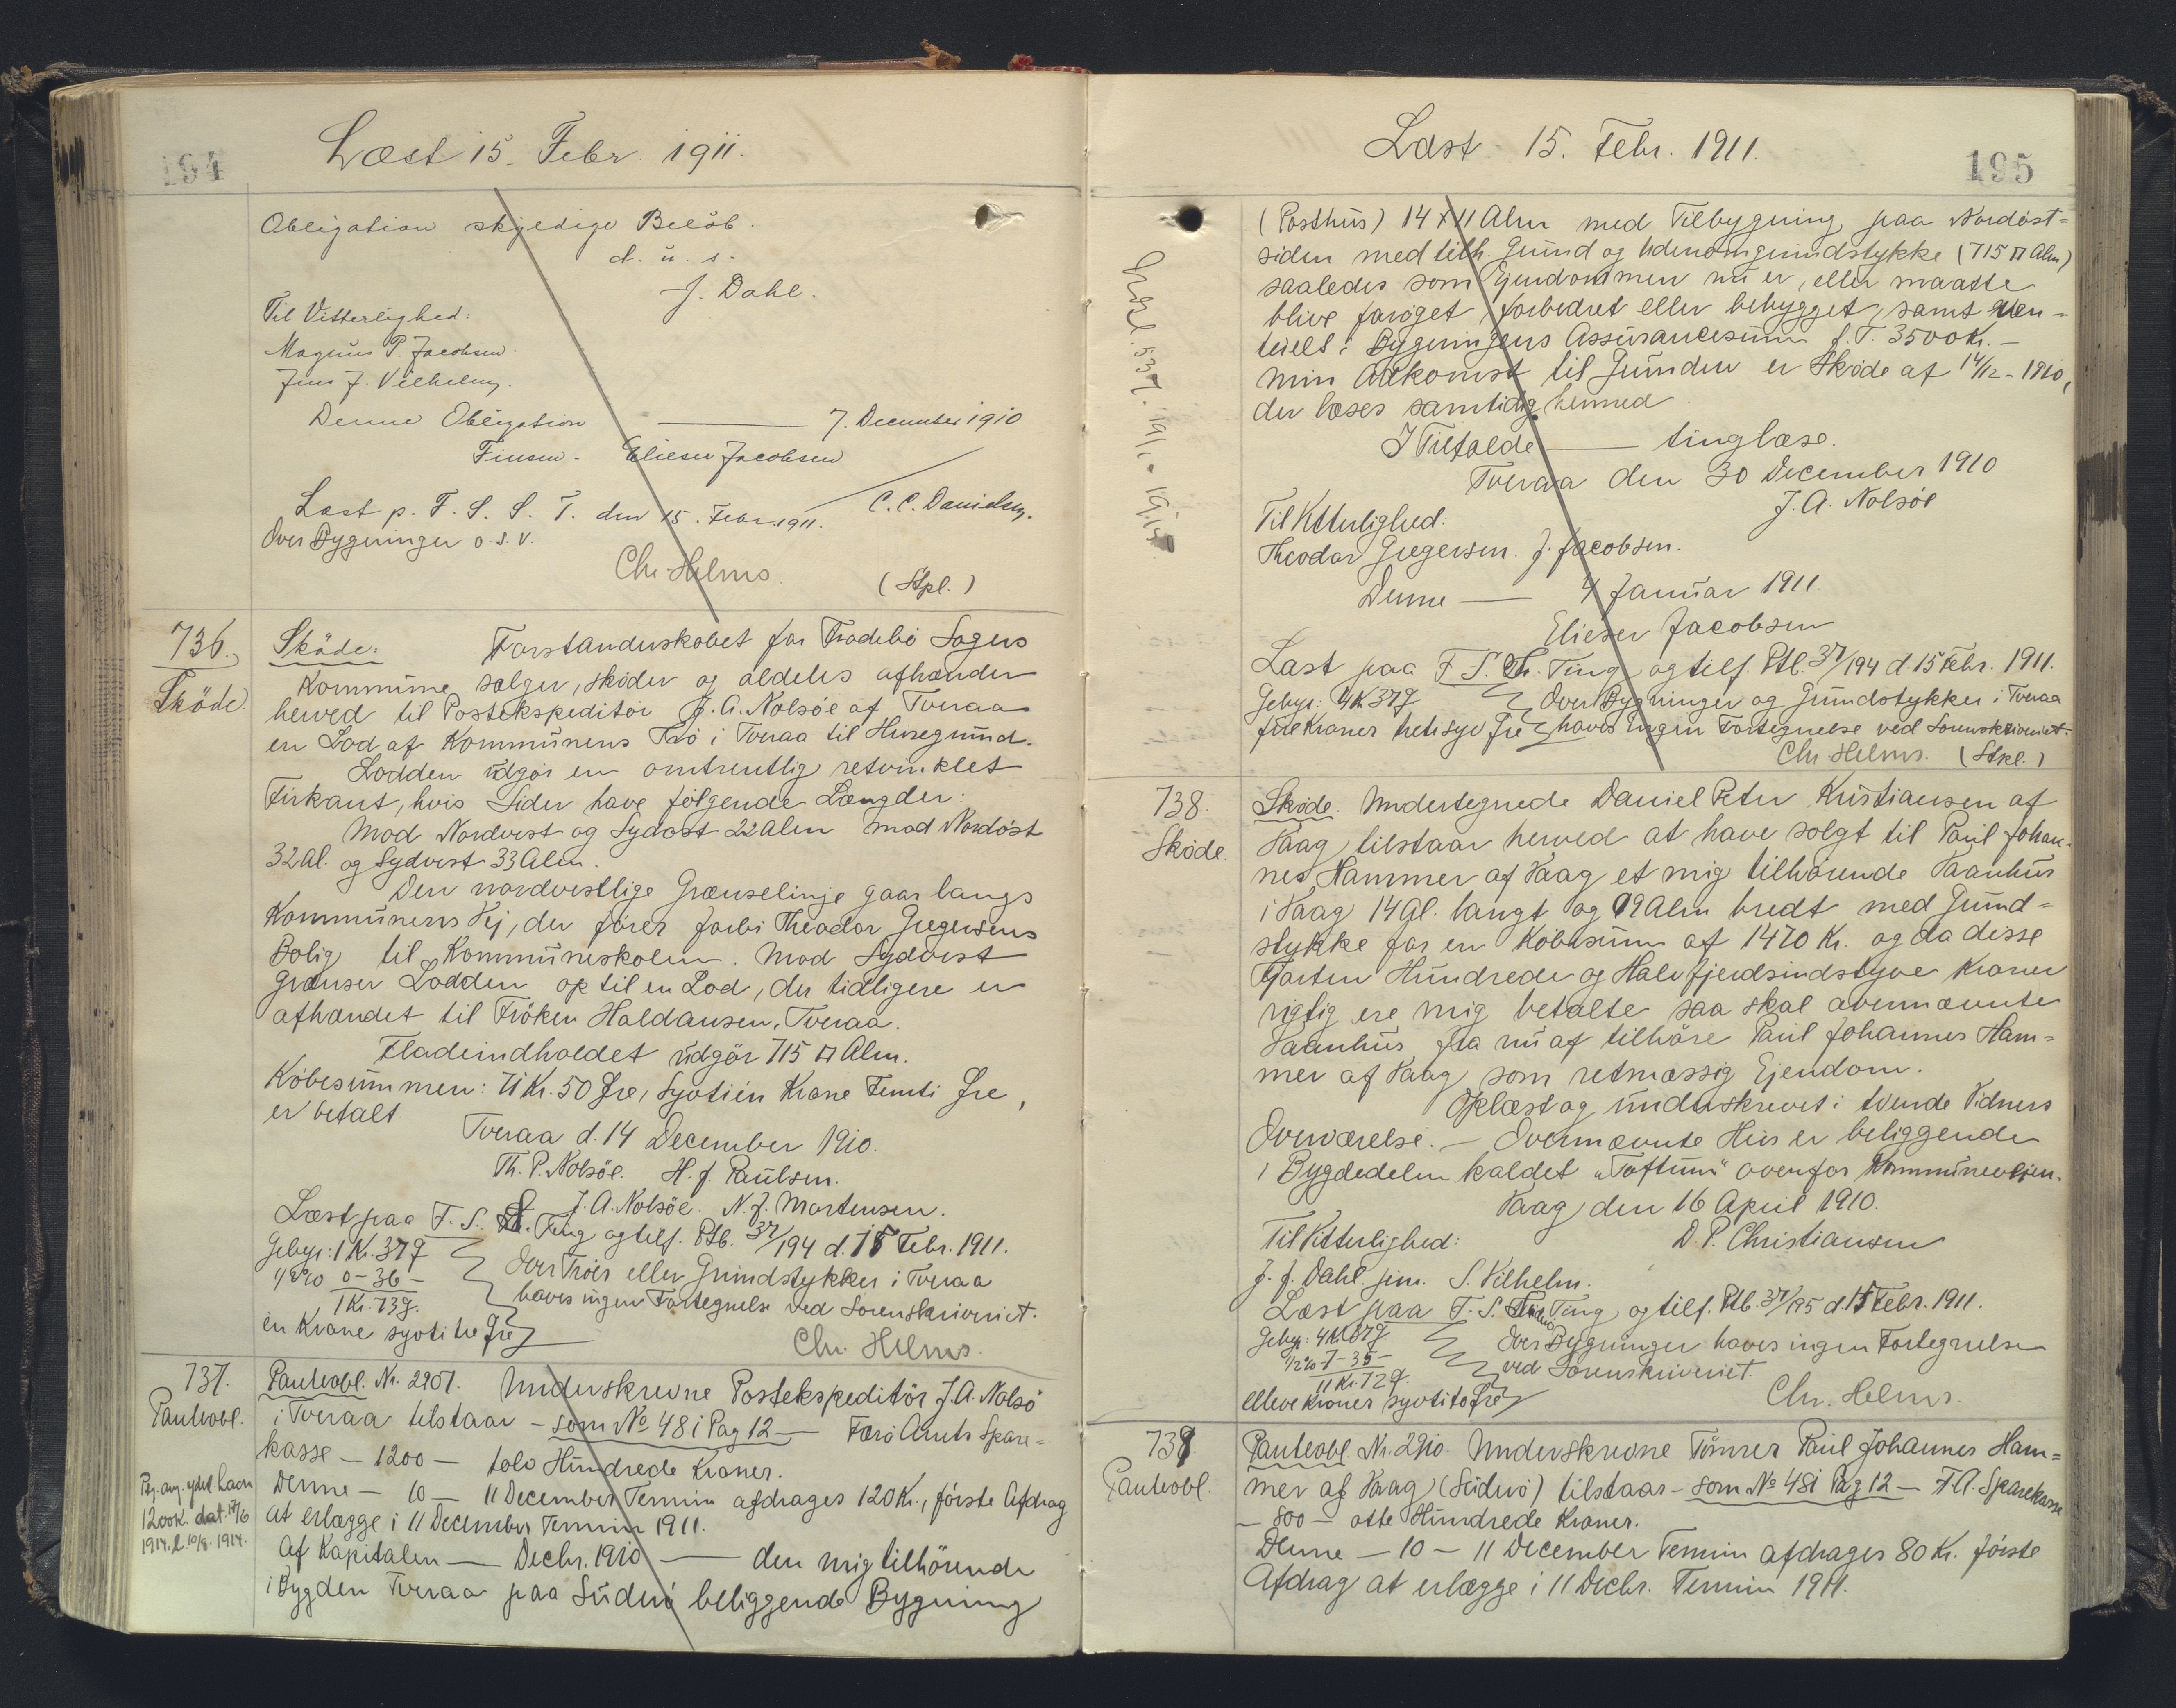 194
Læst 15. Febr. 1911.
Obligation skyldige Beløb.
d. u. s.
J. Dahl.
Til Vitterlighed:
Magnus P. Jacobsen.
Jens J. Vilhelm.
Denne Obligation — 7. December 1910
Finsen - Elieser Jacobsen
C. C. Danielsen.
Læst p. F. S. S. T. den 15. Febr. 1911.
Over Bygninger o.s.v.
Chr. Helms.
(Stpl.)
736.
Sköde.
Sköde: Forstanderskabet for Frodebö Sogns
Kommune sælger, sköder og aldeles afhænder
herved til Postekspeditör J. A. Nolsöe af Tveraa
en Lod af Kommunens Trö i Tveraa til Husegrund.
Lodden udgör en omtrentlig retvinklet
Firkant, hvis Sider have fölgende Længder:
Mod Nordvest og Sydöst 22 Alen mod Nordöst
32 Al. og Sydvest 33 Alen.
Den nordvestlige Grænselinje gaar langs
Kommunens Vej, der förer forbi Theodor Gregersens
Bolig til Kommuneskolen. Mod Sydvest
grænser Lodden op til en Lod, der tidligere er
afhændet til Fröken Haldansen, Tveraa.
Fladeindholdet udgör 715 □ Alen.
Köbesummen: 71 Kr. 50 Øre, Syvtién Krone Femti Øre,
er betalt.
Tveraa d. 14 December 1910.
Th. P. Nolsöe. H. J. Paulsen.
J. A. Nolsöe. N. J. Mortensen.
Læst paa F. S. S. Ting og tilf. Ptb. 37/194 d. 15 Febr. 1911.
Gebyr: 1 Kr. 37 Ø
1/2 % 0 - 36 -
1 Kr. 73 Ø.
en Krone syvti tre Øre
Over Tröer eller Grundstykker i Tveraa
haves ingen Fortegnelse ved Sorenskriveriet.
Chr. Helms.
737.
Panteobl.
Panteobl. Nr. 2907. Underskrevne Postekspeditör J. A. Nolsö
i Tveraa tilstaar - som No 48 i Pag 12 — Færö Amts Spare=
kasse - 1200 - tolv Hundrede Kroner.
Denne - 10 - 11 December Termin afdrages 120 Kr., förste Afdrag
at erlægge i 11 December Termin 1911.
Af Kapitalen — Decbr. 1910 — den mig tilhörende
i Bygden Tveraa paa Süderö beliggende Bygning
Laan
1200 K. dat. 17/6
1914. l. 10/8. 1914.
195
Læst 15. Febr. 1911.
(Posthus) 14 x 11 Alen med Tilbygning paa Nordöst=
siden med tilh. Grund og Udenomgrundstykke (715 □ Alen)
saaledes som Ejendommen nu er, eller maatte
blive foröget, forbedret eller bebygget, samt even=
tuelt i Bygningens Assurancesum f. T. 3500 Kr. -
Min Adkomst til Grunden er Sköde af 14/12 - 1910,
der læses samtidig hermed.
I Tilfælde — tinglæse.
Tveraa den 30 December 1910
J. A. Nolsöe
Til Vitterlighed:
Theodor Gregersen. J. Jacobsen.
Denne — 4 Januar 1911.
Elieser Jacobsen
Læst paa F. S. S. Ting og tilf. Ptb. 37/194 d. 15 Febr. 1911.
Gebyr: 4 K 37 Ø
fire Kroner treti syv Øre
Over Bygninger og Grundstykker i Tveraa
haves ingen Fortegnelse ved Sorenskriveriet.
Chr. Helms. (Stpl.)
738.
Sköde.
Sköde. Undertegnede Daniel Peter Kristiansen af
Vaag tilstaar herved at have solgt til Paul Johan-
nes Hammer af Vaag et mig tilhörende Vaanhus
i Vaag 14 Al. langt og 9 Alen bredt med Grund=
stykke for en Köbesum af 1470 Kr. og da disse
Fjorten Hundrede og Halvfjerdsindstyve Kroner
rigtig ere mig betalte saa skal ovennævnte
Vaanhus fra nu af tilhöre Paul Johannes Ham=
mer af Vaag som retmæssig Ejendom.
Oplæst og underskrevet i tvende Vidners
Overværelse. - Ovennævnte Hus er beliggende
i Bygdedelen kaldet "Toftum" ovenfor Kommunevejen.
Vaag den 16 April 1910.
Til Vitterlighed: D. P. Christiansen
J. J. Dahl. jun. S. Vilhelm.
Læst paa F. S. Ting og tilf. Ptb. 37/195 d. 15 Febr. 1911.
Gebyr: 4 K 37 Ø.
1/2 % 7 - 35 -
11 Kr. 72 Ø.
elleve Kroner syvti to Øre
Over Bygninger haves ingen Fortegnelse
ved Sorenskriveriet.
Chr. Helms.
739.
Panteobl.
Panteobl. Nr. 2910. Underskrevne Tömrer Paul Johannes Ham=
mer af Vaag (Süderö) tilstaar - som No 48 i Pag 12 - F. A. Sparekasse
- 800 - otte Hundrede Kroner.
Denne - 10 - 11 December Termin afdrages 80 Kr. förste
Afdrag at erlægge i 11 Decbr. Termin 1911.